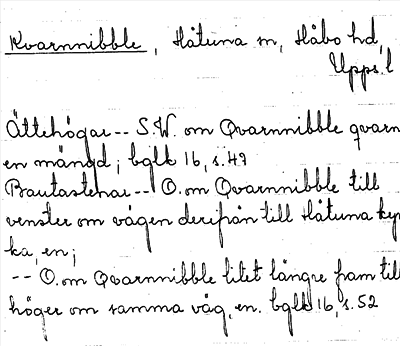 Kvarnnibble, Håtuna sn, Håbo hd,
Upps. l
Ättehögar-- S.W. om Qvarnnibble qvarn
en mängd; bglk 16, s. 49
Bautastenar-- O. om Qvarnnibble till
venster om vägen derifrån till Håtuna kyr
ka, en;
-- O. om Qvarnnibble litet längre fram till
höger om samma väg, en. bglk 16, s. 52